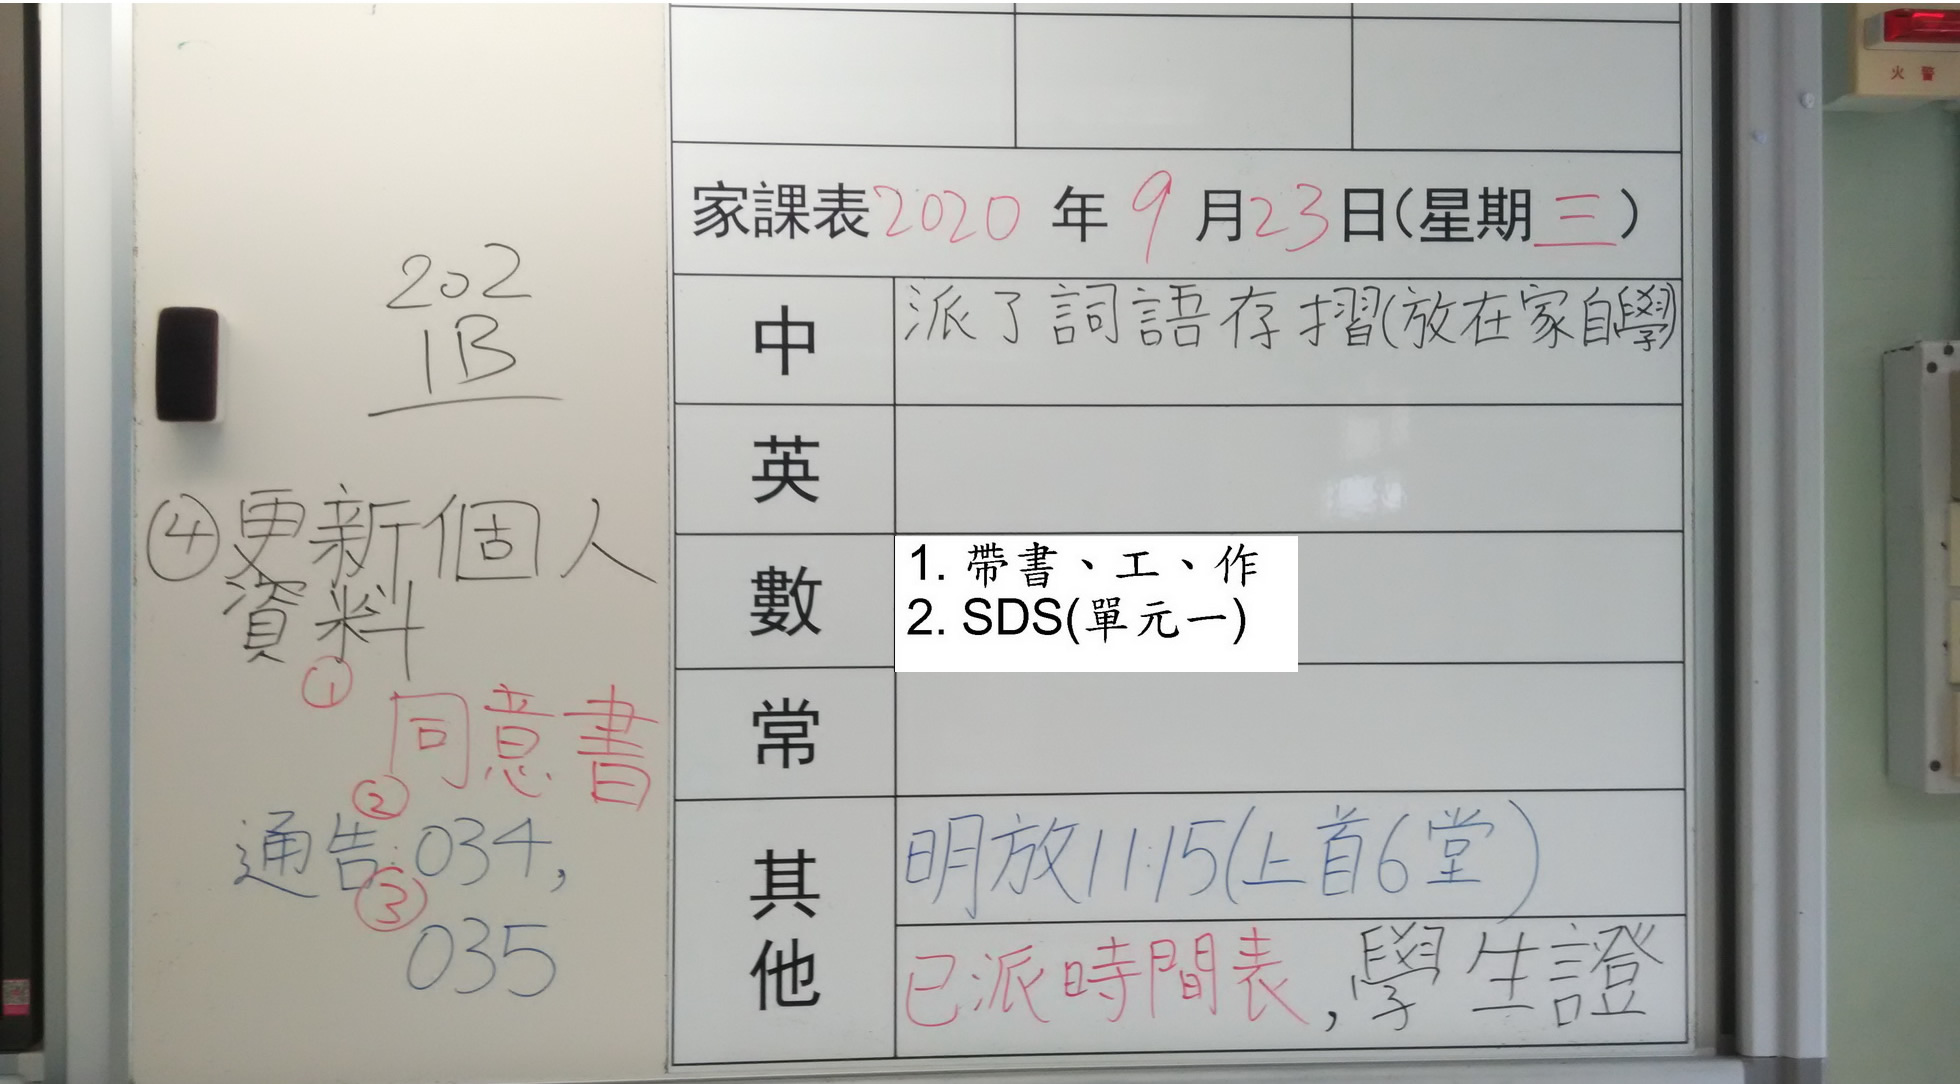 202
1B
④更新個人
資料
①
同意書
②
通告:034,
③
035
家課表2020年9月23日(星期三)
中
派了詞語存摺(放在家自學)
英
數
1. 帶書、工、作
2. SDS(單元一)
常
其他
明放11:15(上首6堂)
已派時間表,學生證
火警